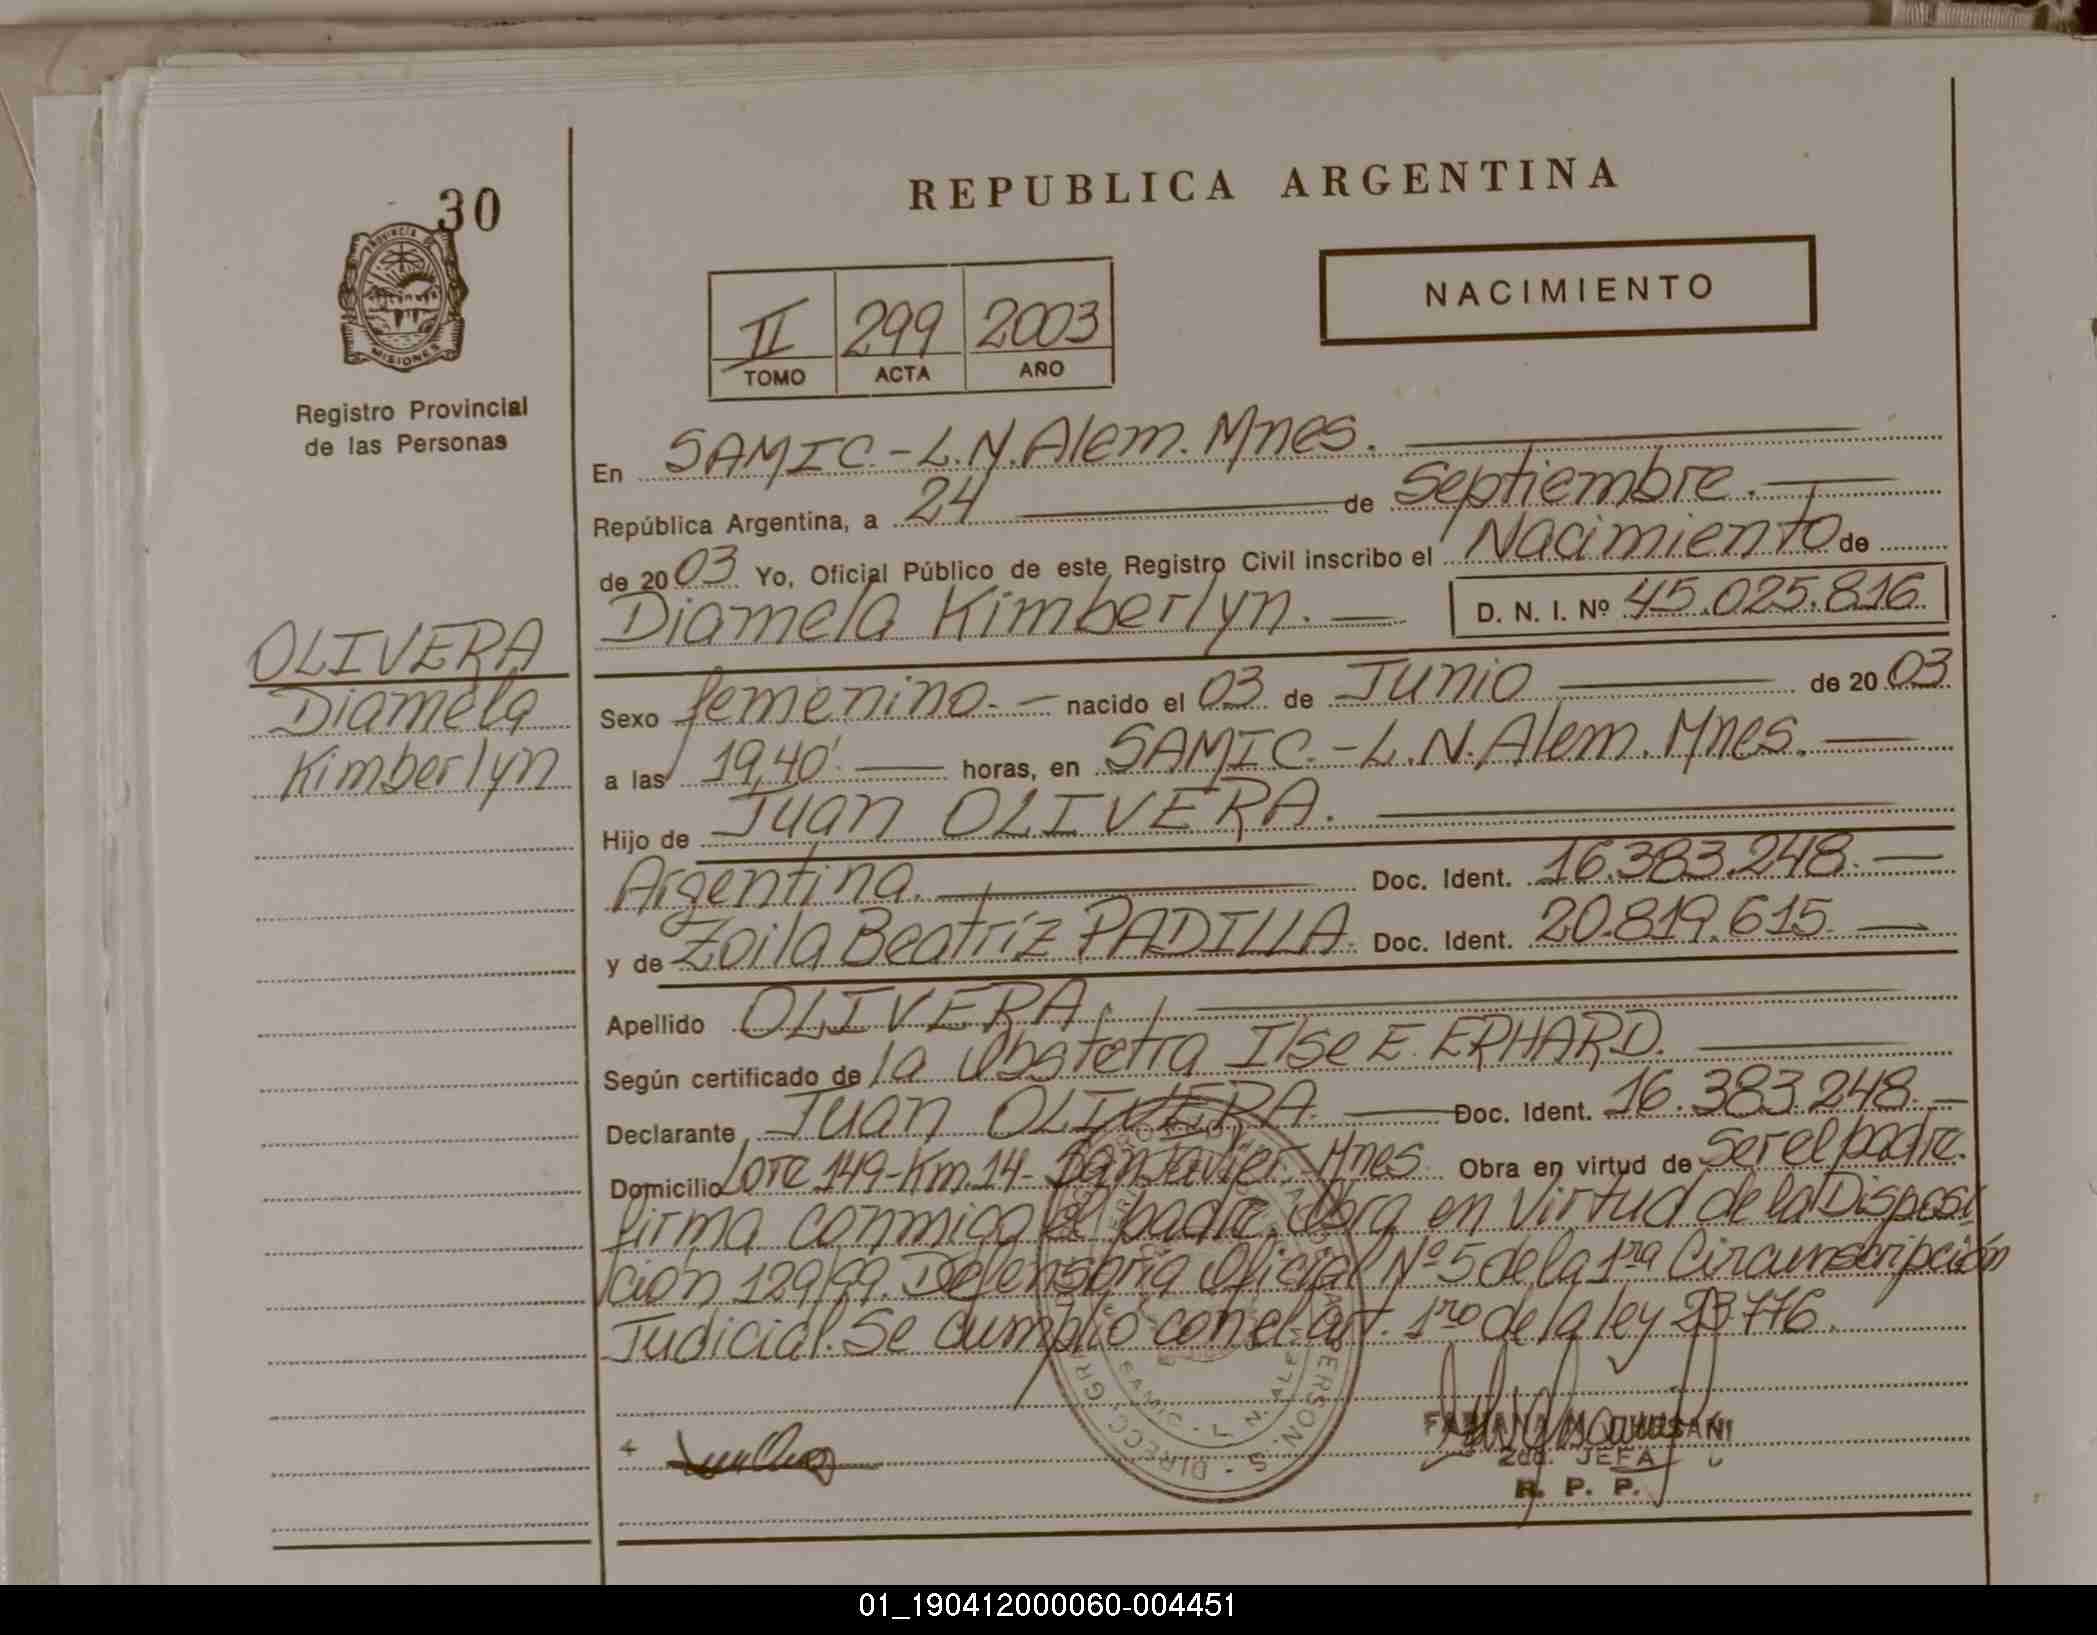 30
PROVINCIA DE
MISIONES
Registro Provincial
de las Personas
REPUBLICA ARGENTINA
II 299 2003
TOMO ACTA AÑO
NACIMIENTO
En SAMIC.-L.N.Alem.Mnes.
República Argentina, a 24 de Septiembre.
de 2003 Yo, Oficial Público de este Registro Civil inscribo el Nacimiento de
Diamela Kimberlyn. D. N. I. Nº 45.025.816
OLIVERA
Diamela
Kimberlyn
Sexo femenino.- nacido el 03 de Junio de 2003
a las 19,40' horas, en SAMIC.-L.N.Alem.Mnes.
Hijo de Juan OLIVERA.
Argentina. Doc. Ident. 16.383.248.
y de Zoila Beatriz PADILLA. Doc. Ident. 20.819.615.
Apellido OLIVERA.
Según certificado de la Obstetra Ilse E. ERHARD.
Declarante Juan OLIVERA. Doc. Ident. 16.383.248.
Domicilio Lote 149-Km.14- San Javier-Mnes. Obra en virtud de ser el padre.
firma conmigo el padre. Obra en virtud de la Disposi
ción 129/99. Defensoria Oficial Nº 5 de la 1ra Circunscripción
Judicial. Se cumplió con el art. 1ro de la ley 23776.
SAMIC - L. N. ALEM
2da. JEFA
R. P. P.
01_190412000060-004451